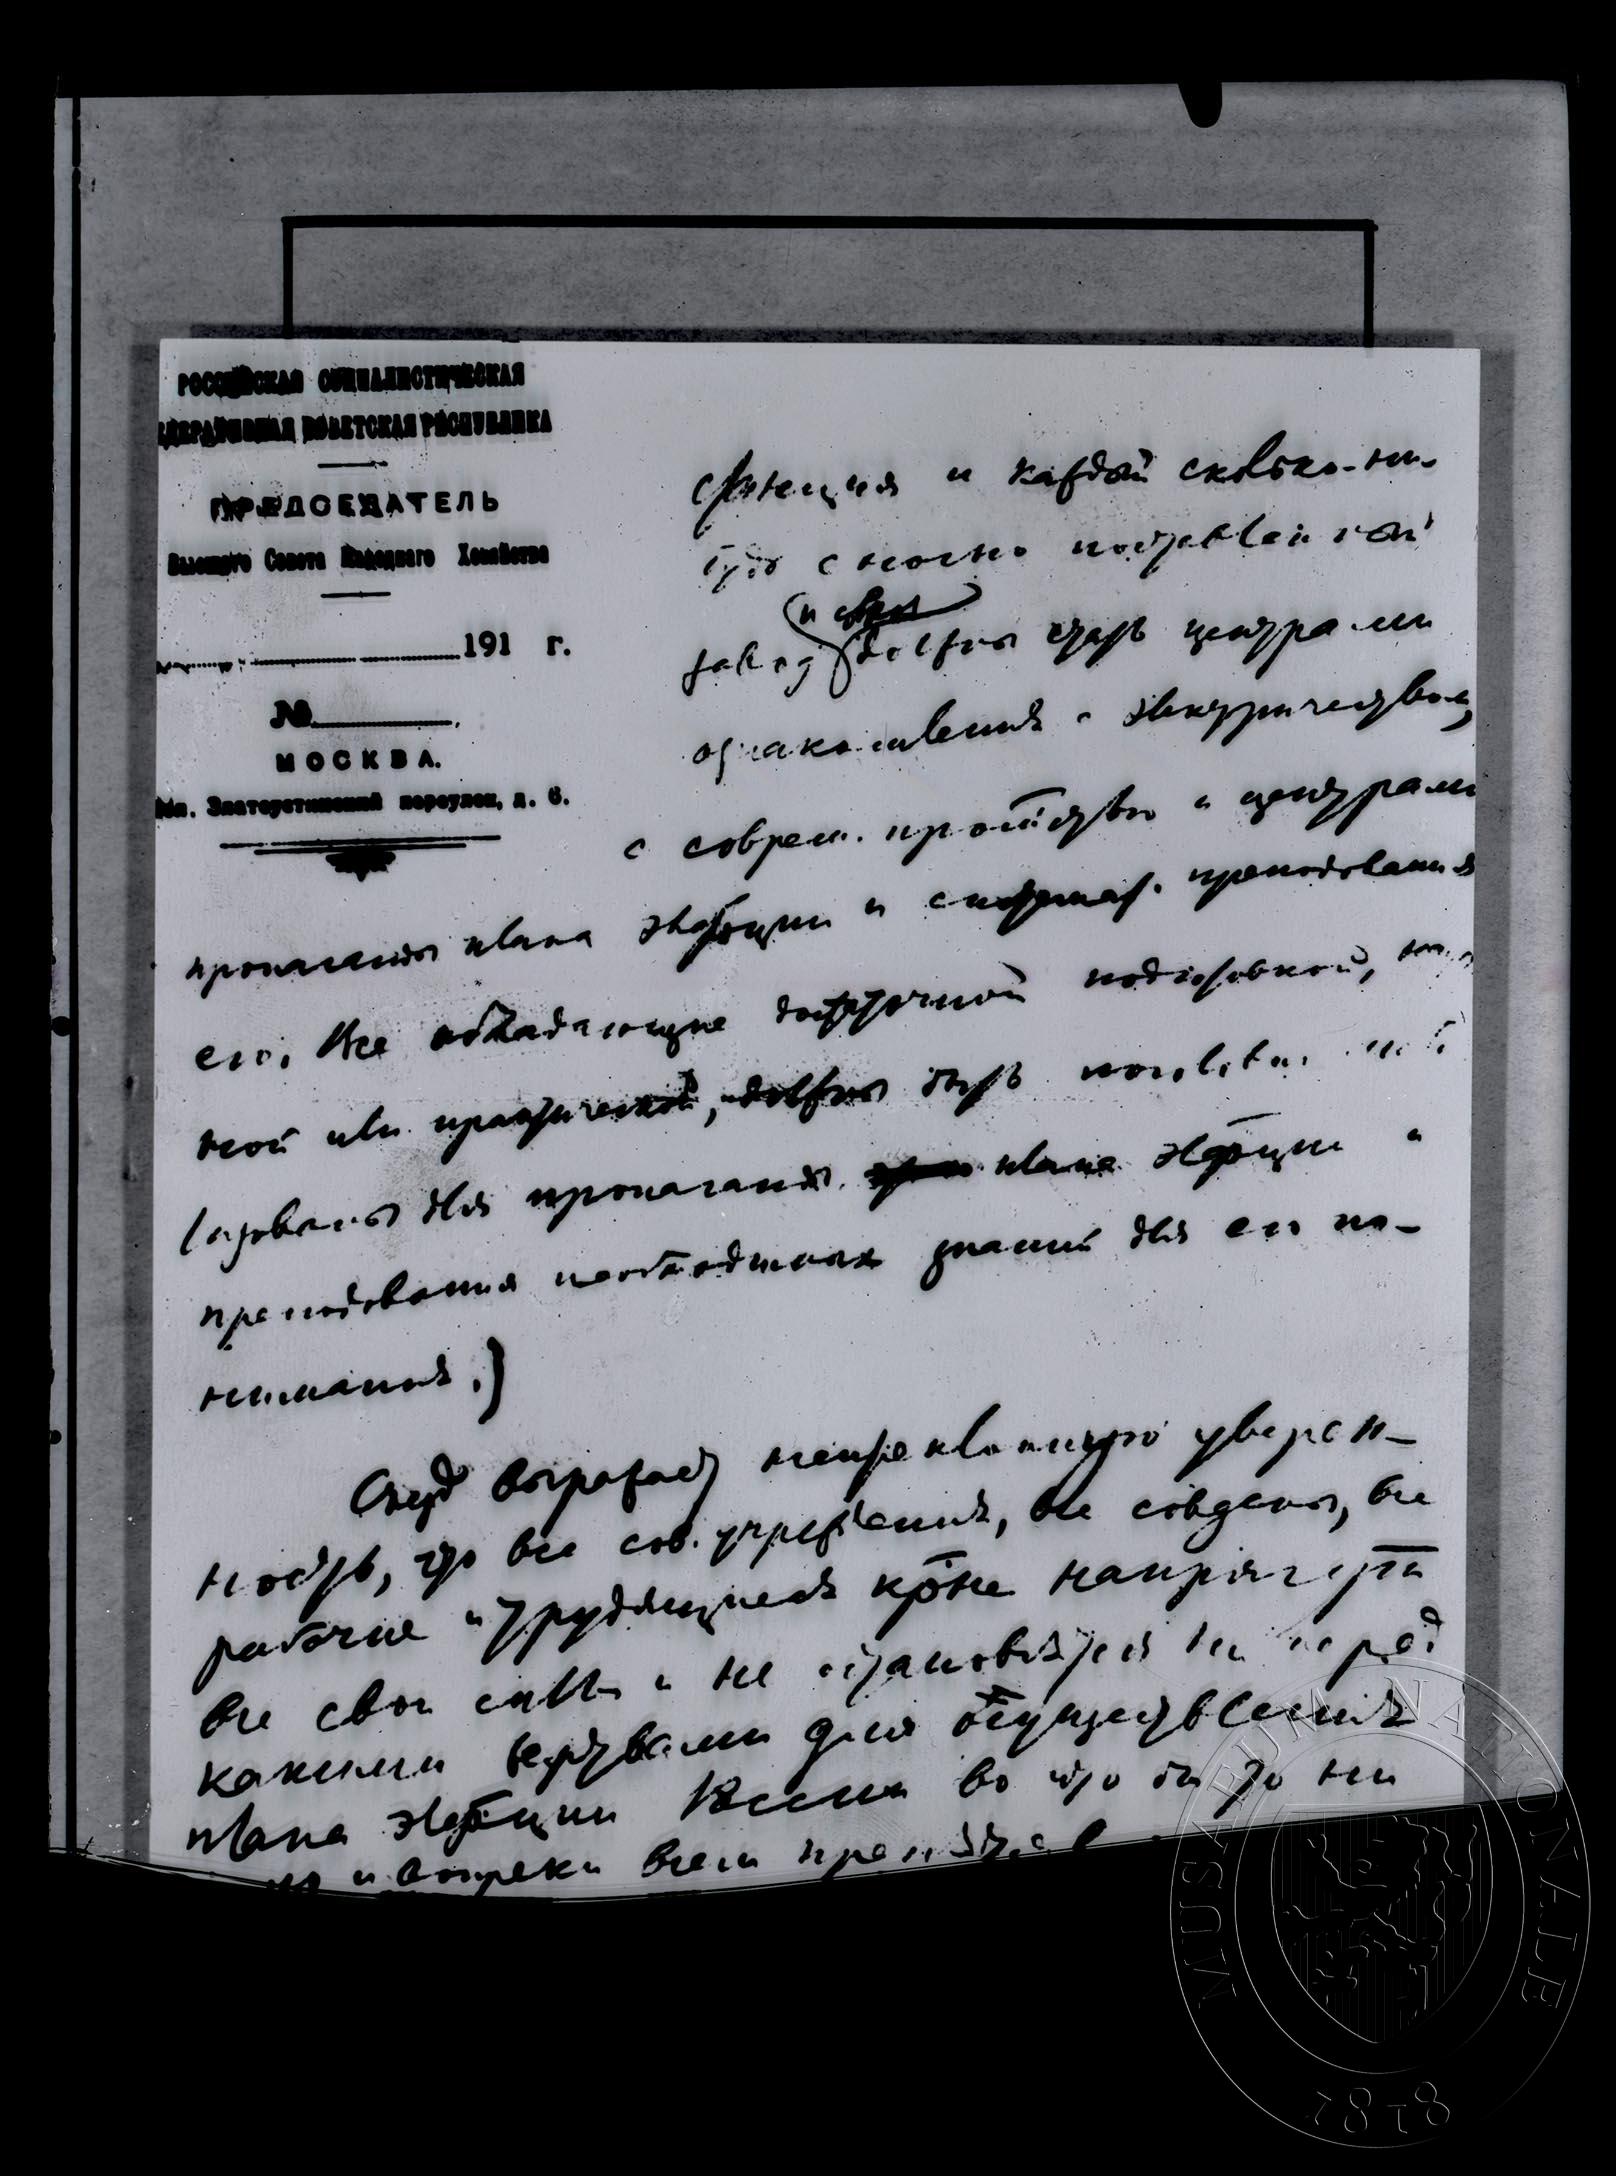 РОССИЙСКАЯ СОЦИАЛИСТИЧЕСКАЯ
ФЕДЕРАТИВНАЯ СОВЕТСКАЯ РЕСПУБЛИКА
ПРЕДСЕДАТЕЛЬ
Высшего Совета Народного Хозяйства
191 г.
№
МОСКВА.
Мл. Златоустинский переулок, д. 6.
станция и каждый сколько-ни-
будь сносно поставленный
завод должны стать центрами
ознакомления с электричеством,
с соврем. пром-стью и центрами
пропаганды плана эл-фикации и систематич. преподавания
его. Все обладающие достаточной подготовкой,
ной или практической, должны быть
лизованы для пропаганды плана эл-фикации и
преподавания необходимых знаний для его по-
нимания.)
Съезд выражает непреклонную уверен-
ность, что все сов. учреждения, все совдепы, все
рабочие и трудящиеся кр-не напрягут
все свои силы и не остановятся ни перед
какими жертвами для осуществления
плана эл-фикации России во что бы то ни
и вопреки всем
MUSAEUM NATIONALE
1818